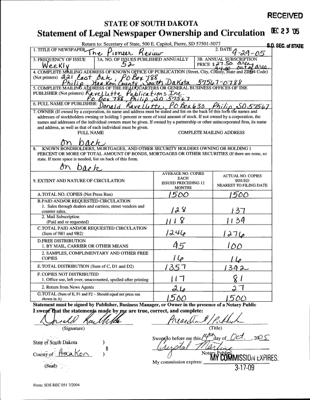 RECEIVED
DEC 23 '05
S.D. SEC. OF STATE
STATE OF SOUTH DAKOTA
Statement of Legal Newspaper Ownership and Circulation
Return to: Secretary of State, 500 E. Capitol, Pierre, SD 57501-5077
1. TITLE OF NEWSPAPER The Pioneer Review
2. DATE 9-29-05
3. FREQUENCY OF ISSUE Weekly
3A. NO. OF ISSUES PUBLISHED ANNUALLY 52
3B. ANNUAL SUBSCRIPTION PRICE
4. COMPLETE MAILING ADDRESS OF KNOWN OFFICE OF PUBLICATION (Street, City, County, State and Zip+4 Code)
221 East Oak, PO Box 788
Philip, Haakon County, South Dakota 57567-0788
5. COMPLETE MAILING ADDRESS OF THE HEADQUARTERS OR GENERAL BUSINESS OFFICES OF THE
Ravellette Publications Inc.
PO Box 788 Philip, SD 57567
6. FULL NAME OF PUBLISHER: Donald Ravellette, PO Box 633 Philip, SD 57567
7. OWNER (If owned by a corporation, its name and address must be stated and also on the back of this form the names and
addresses of stockholders owning or holding 1 percent or more of total amount of stock. If not owned by a corporation, the
names and addresses of the individual owners must be given. If owned by a partnership or other unincorporated firm, its name
and address, as well as that of each individual must be given.
FULL NAME
COMPLETE MAILING ADDRESS
on back
8. KNOWN BONDHOLDERS, MORTGAGES, AND OTHER SECURITY HOLDERS OWNING OR HOLDING 1
PERCENT OR MORE OF TOTAL AMOUNT OF BONDS, MORTGAGES OR OTHER SECURITIES (If there are none, so
state. If more space is needed, list on back of this form.
on back
9. EXTENT AND NATURE OF CIRCULATION
AVERAGE NO. COPIES EACH ISSUED PRECEDING 12 MONTHS
ACTUAL NO. COPIES ISSUED NEAREST TO FILING DATE
A. TOTAL NO. COPIES (Net Press Run) 1500 1500
B. PAID AND/OR REQUESTED CIRCULATION
1. Sales through dealers and carriers, street vendors and
counter sales. 128 137
2. Mail Subscription
(Paid and or requested) 1118 1139
C. TOTAL PAID AND/OR REQUESTED CIRCULATION
(Sum of 9B1 and 9B2) 1246 1276
D. FREE DISTRIBUTION
1. BY MAIL, CARRIER OR OTHER MEANS 95 100
2. SAMPLES, COMPLIMENTARY AND OTHER FREE
COPIES 16 16
E. TOTAL DISTRIBUTION (Sum of C, D1 and D2) 1357 1392
F. COPIES NOT DISTRIBUTED
1. Office use, left over, unaccounted, spoiled after printing 117 81
2. Return from News Agents 26 27
G. TOTAL (Sum of E, F1 and F2 - Should equal net press run
shown in A) 1500 1500
Statement must be signed by Publisher, Business Manager, or Owner in the presence of a Notary Public
I swear that the statements made by me are true, correct, and complete:
President/Publisher
(Signature)
(Title)
State of South Dakota )
Sworn to before me this day of Oct. 2005
County of Haakon )
Notary Public
(Seal)
My commission expires: MY COMMISSION EXPIRES
3-17-09
Form: SOS REC 051 7/2004